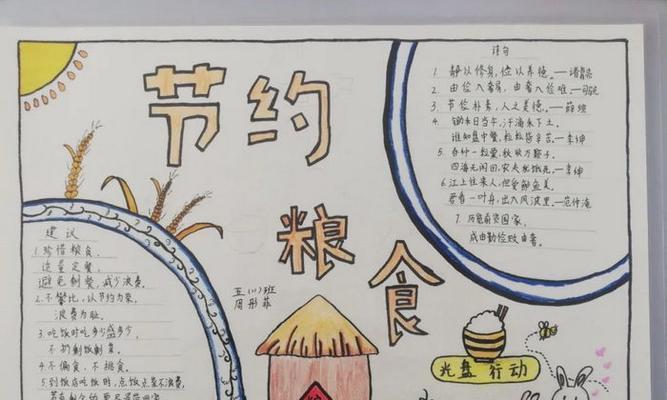 节约
粮食
五(1)班
周彤菲
诗句
1 静以修身,俭以养德。——诸葛亮
2. 由俭入奢易,由奢入俭难。——司马光
3. 节俭朴素,人之美德。——薛瑄
4. 锄禾日当午,汗滴禾下土。
谁知盘中餐,粒粒皆辛苦。——李绅
5. 春种一粒粟,秋收万颗子。
四海无闲田,农夫犹饿死。——李绅
6. 江上往来人,但爱鲈鱼美。
君看一叶舟,出入风波里。——范仲淹
7. 历览前贤国家,
成由勤俭败由奢。
建议
1. 珍惜粮食,
适量定餐,
避免剩餐,减少浪费。
2. 不攀比,以节约为荣,
浪费为耻。
3. 吃饭时吃多少盛多少,
不扔剩饭剩菜。
4. 不偏食,不挑食。
5. 到饭店吃饭时,点饭点菜不浪费,
光盘行动